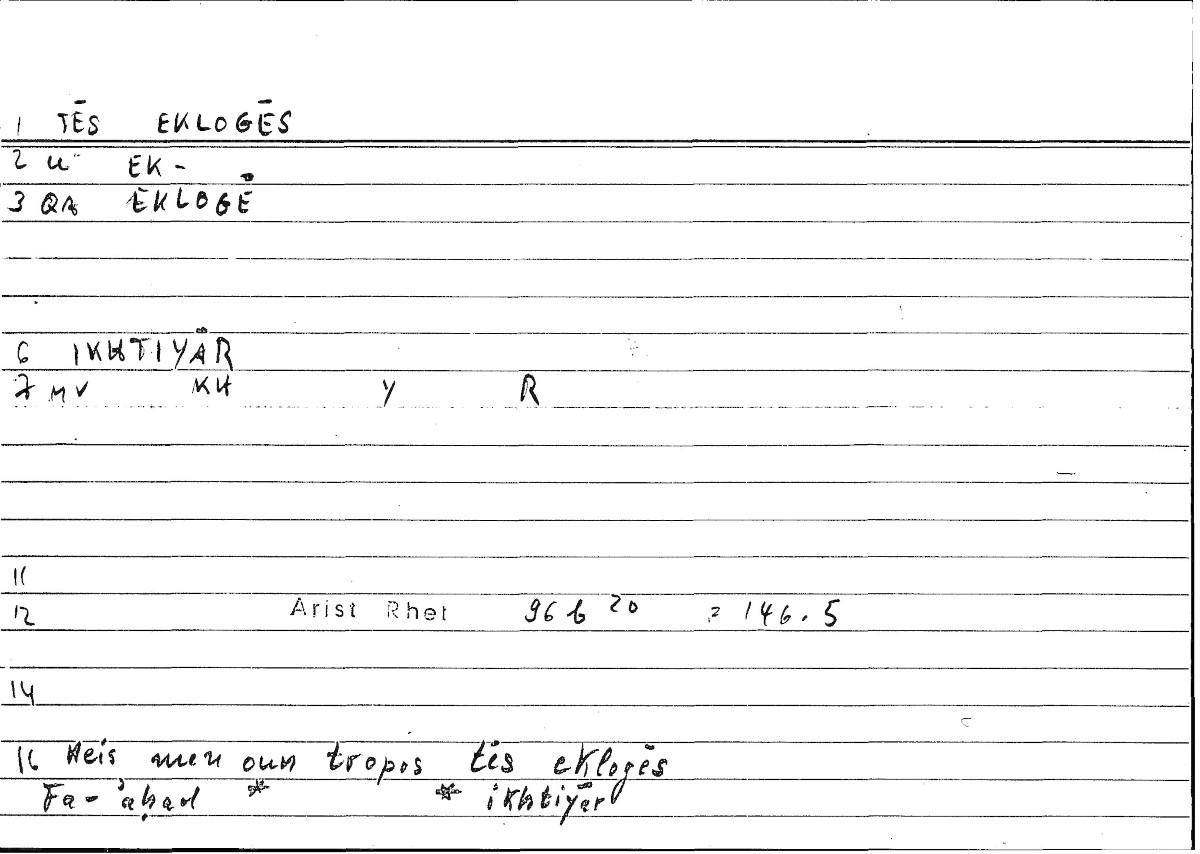 1 TĒS EKLOGĒS
2 U EK-
3 QA EKLOGĒ
6 IKHTIYĀR
7 MV KH Y R
11
12 Arist Rhet 96 b 20 = 146.5
14
16 Heis men oun tropos tēs eklogēs
Fa-'aḥad * * ikhtiyār